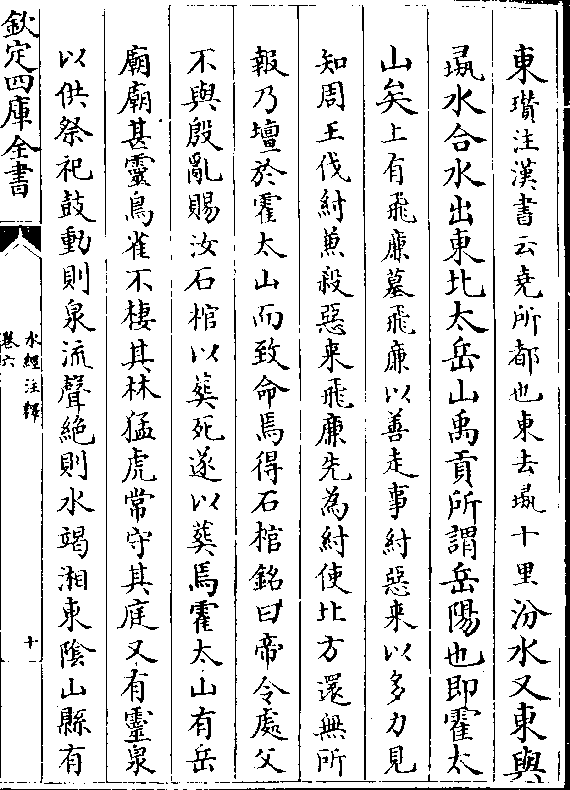 東瓚注漢書云堯所都也東去彘十里汾水又東與
彘水合水出東北太岳山禹貢所謂岳陽也即霍太
山矣上有飛廉墓飛廉以善走事紂惡来以多力見
知周王伐紂兼殺惡来飛廉先為紂使北方還無所
報乃壇於霍太山而致命焉得石棺銘曰帝令處父
不與殷亂賜汝石棺以葬死遂以葬焉霍太山有岳
廟廟甚靈鳥雀不棲其林猛虎常守其庭又有靈泉
以供祭祀鼓動則泉流聲絶則水竭湘東陰山縣有
欽定四庫全書
水經注釋
卷六
十